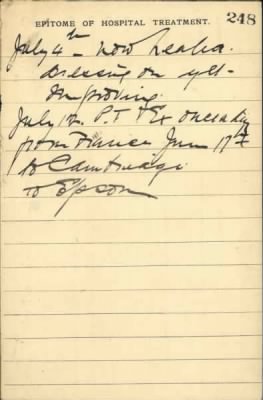 248
EPITOME OF HOSPITAL TREATMENT.
July 4th now healed.
Dressing on yet -
Improving.
July 12. P.T + Ex once a day
from France June 17th
to Cambridge
To Epsom